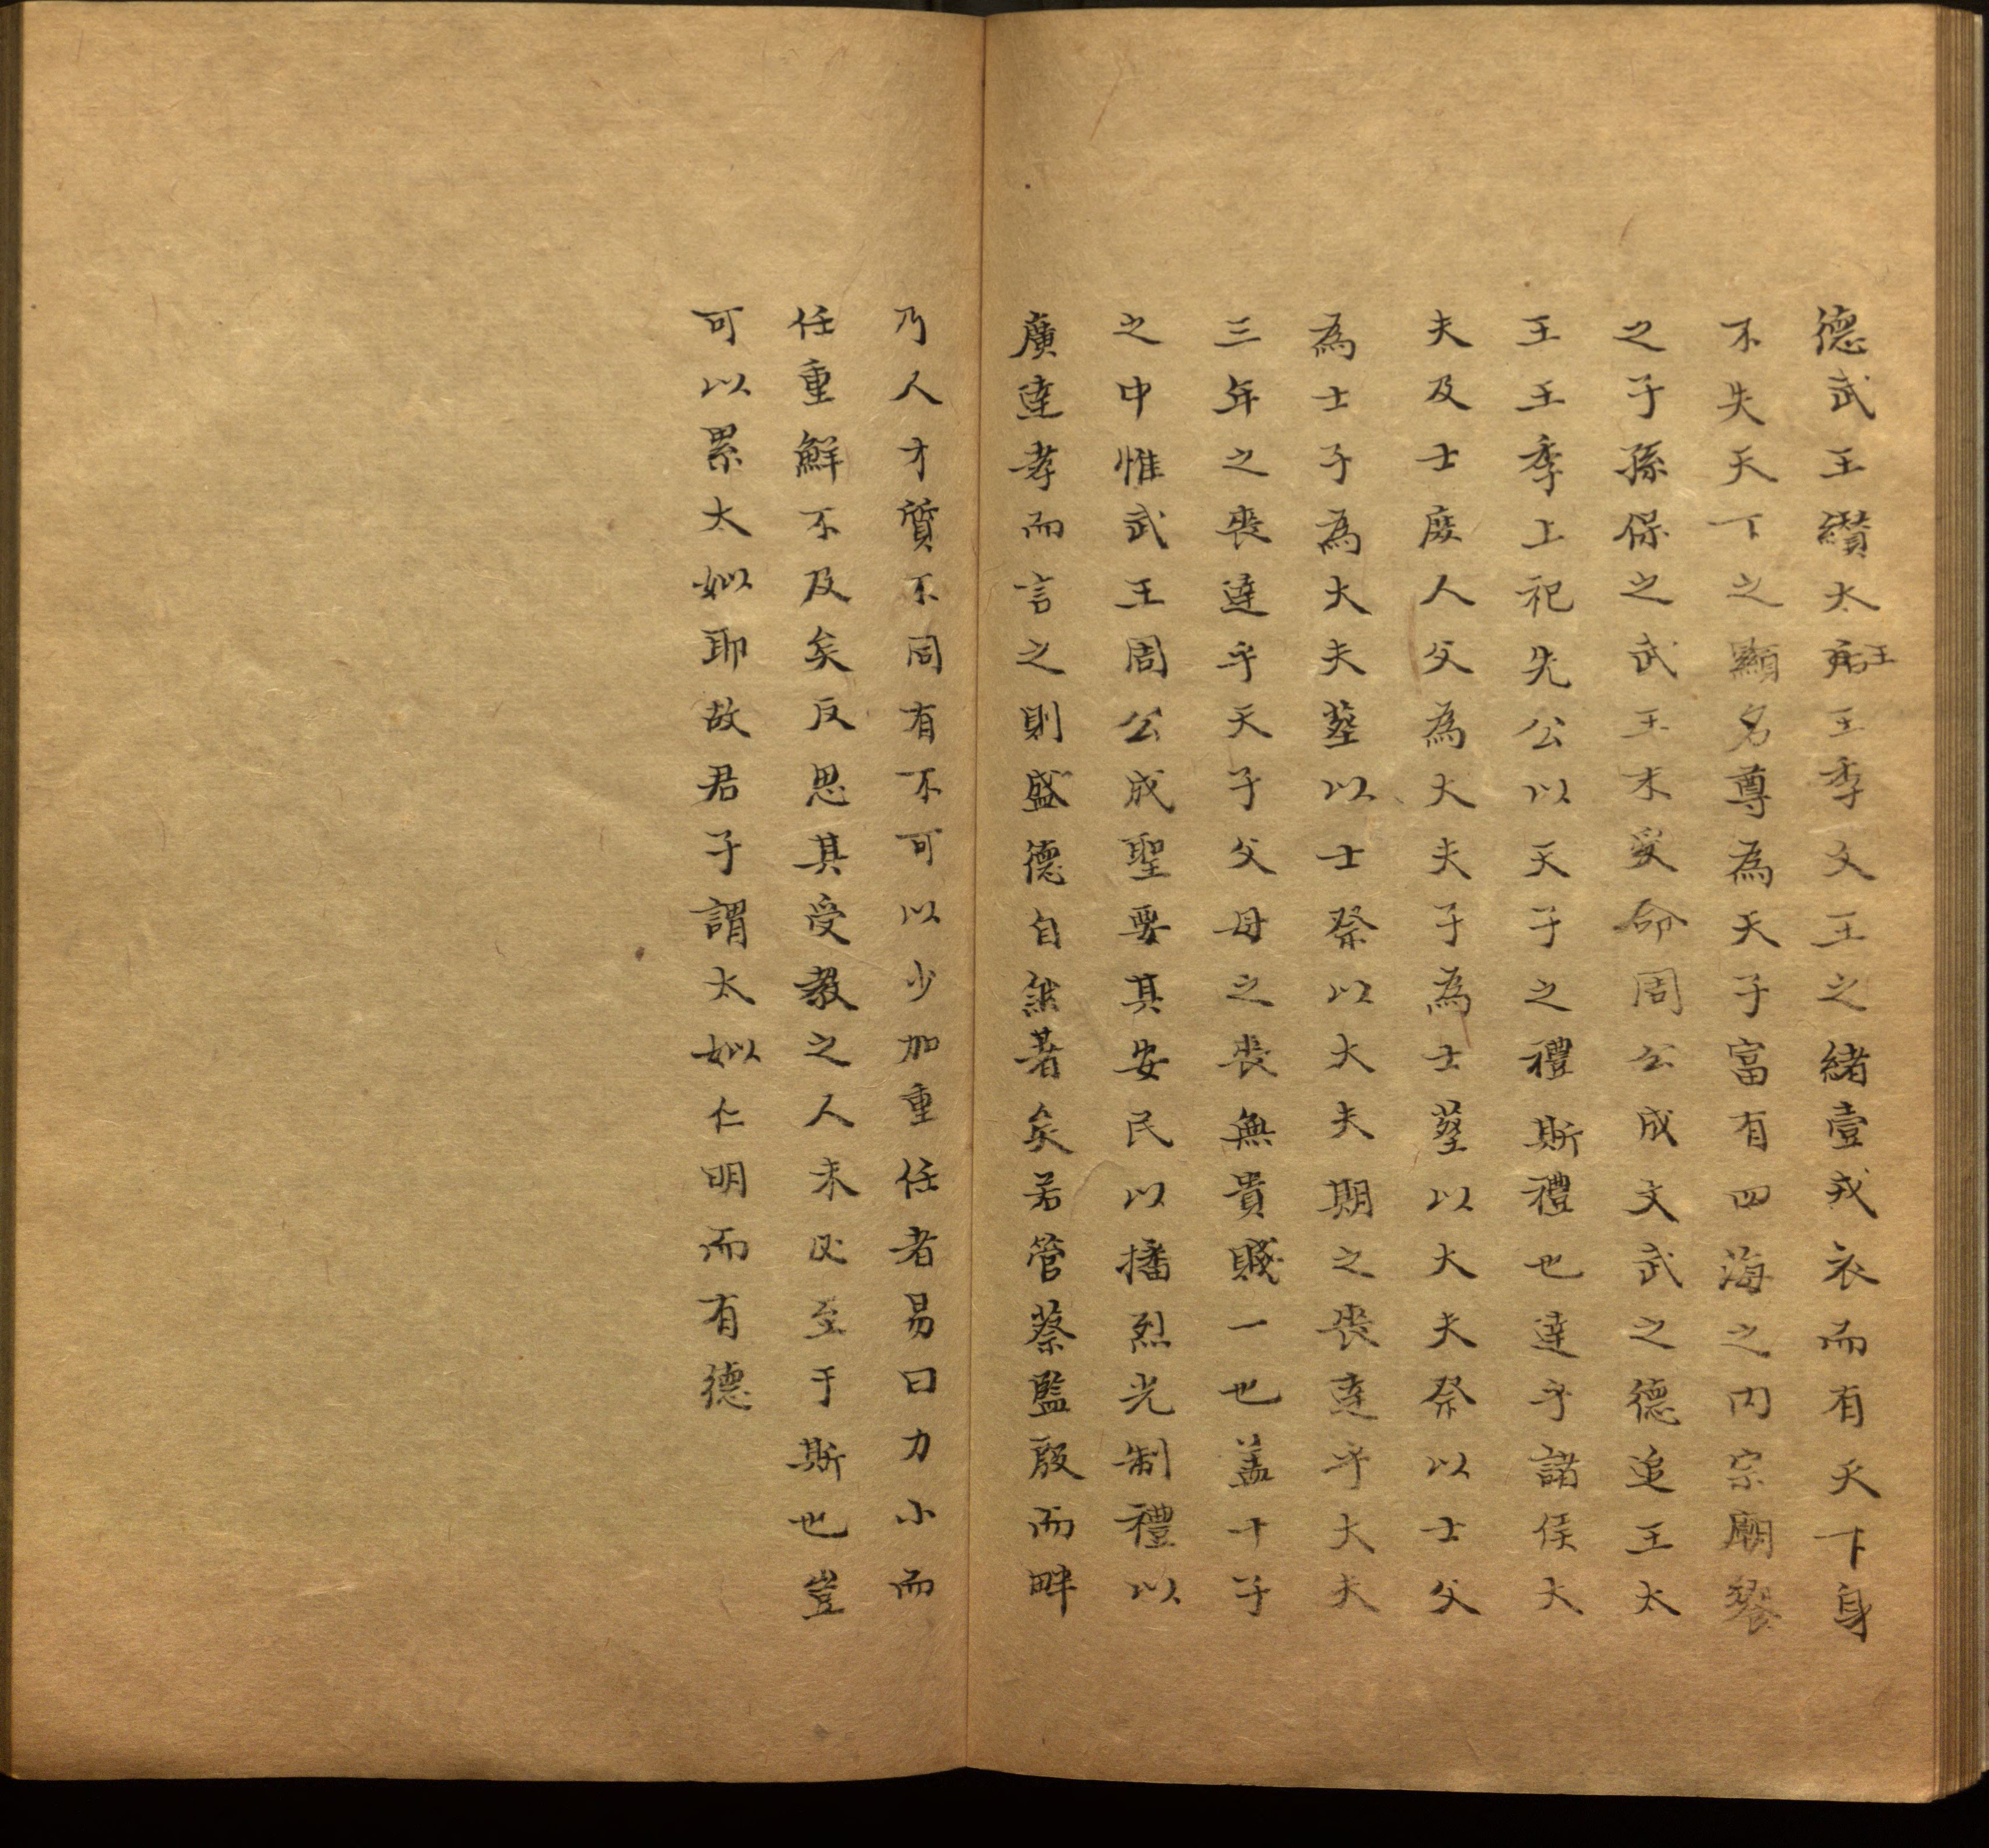 德武王纘太王王季文王之緒壹戎衣而有天下身
不失天下之顯名尊為天子富有四海之内宗廟饗
之子孫保之武王末受命周公成文武之德追王太
王王季上祀先公以天子之禮斯禮也達乎諸侯大
夫及士庶人父為大夫子為士塟以大夫祭以士父
為士子為大夫塟以士祭以大夫期之喪達乎大夫
三年之喪達乎天子父母之喪無貴賤一也盖十子
之中惟武王周公成聖要其安民以播烈光制禮以
廣達孝而言之則盛德自然著矣若管蔡監殷而畔
乃人才質不同有不可以少加重任者易曰力小而
任重鮮不及矣反思其受教之人未必至于斯也豈
可以累太姒耶故君子謂太姒仁明而有德